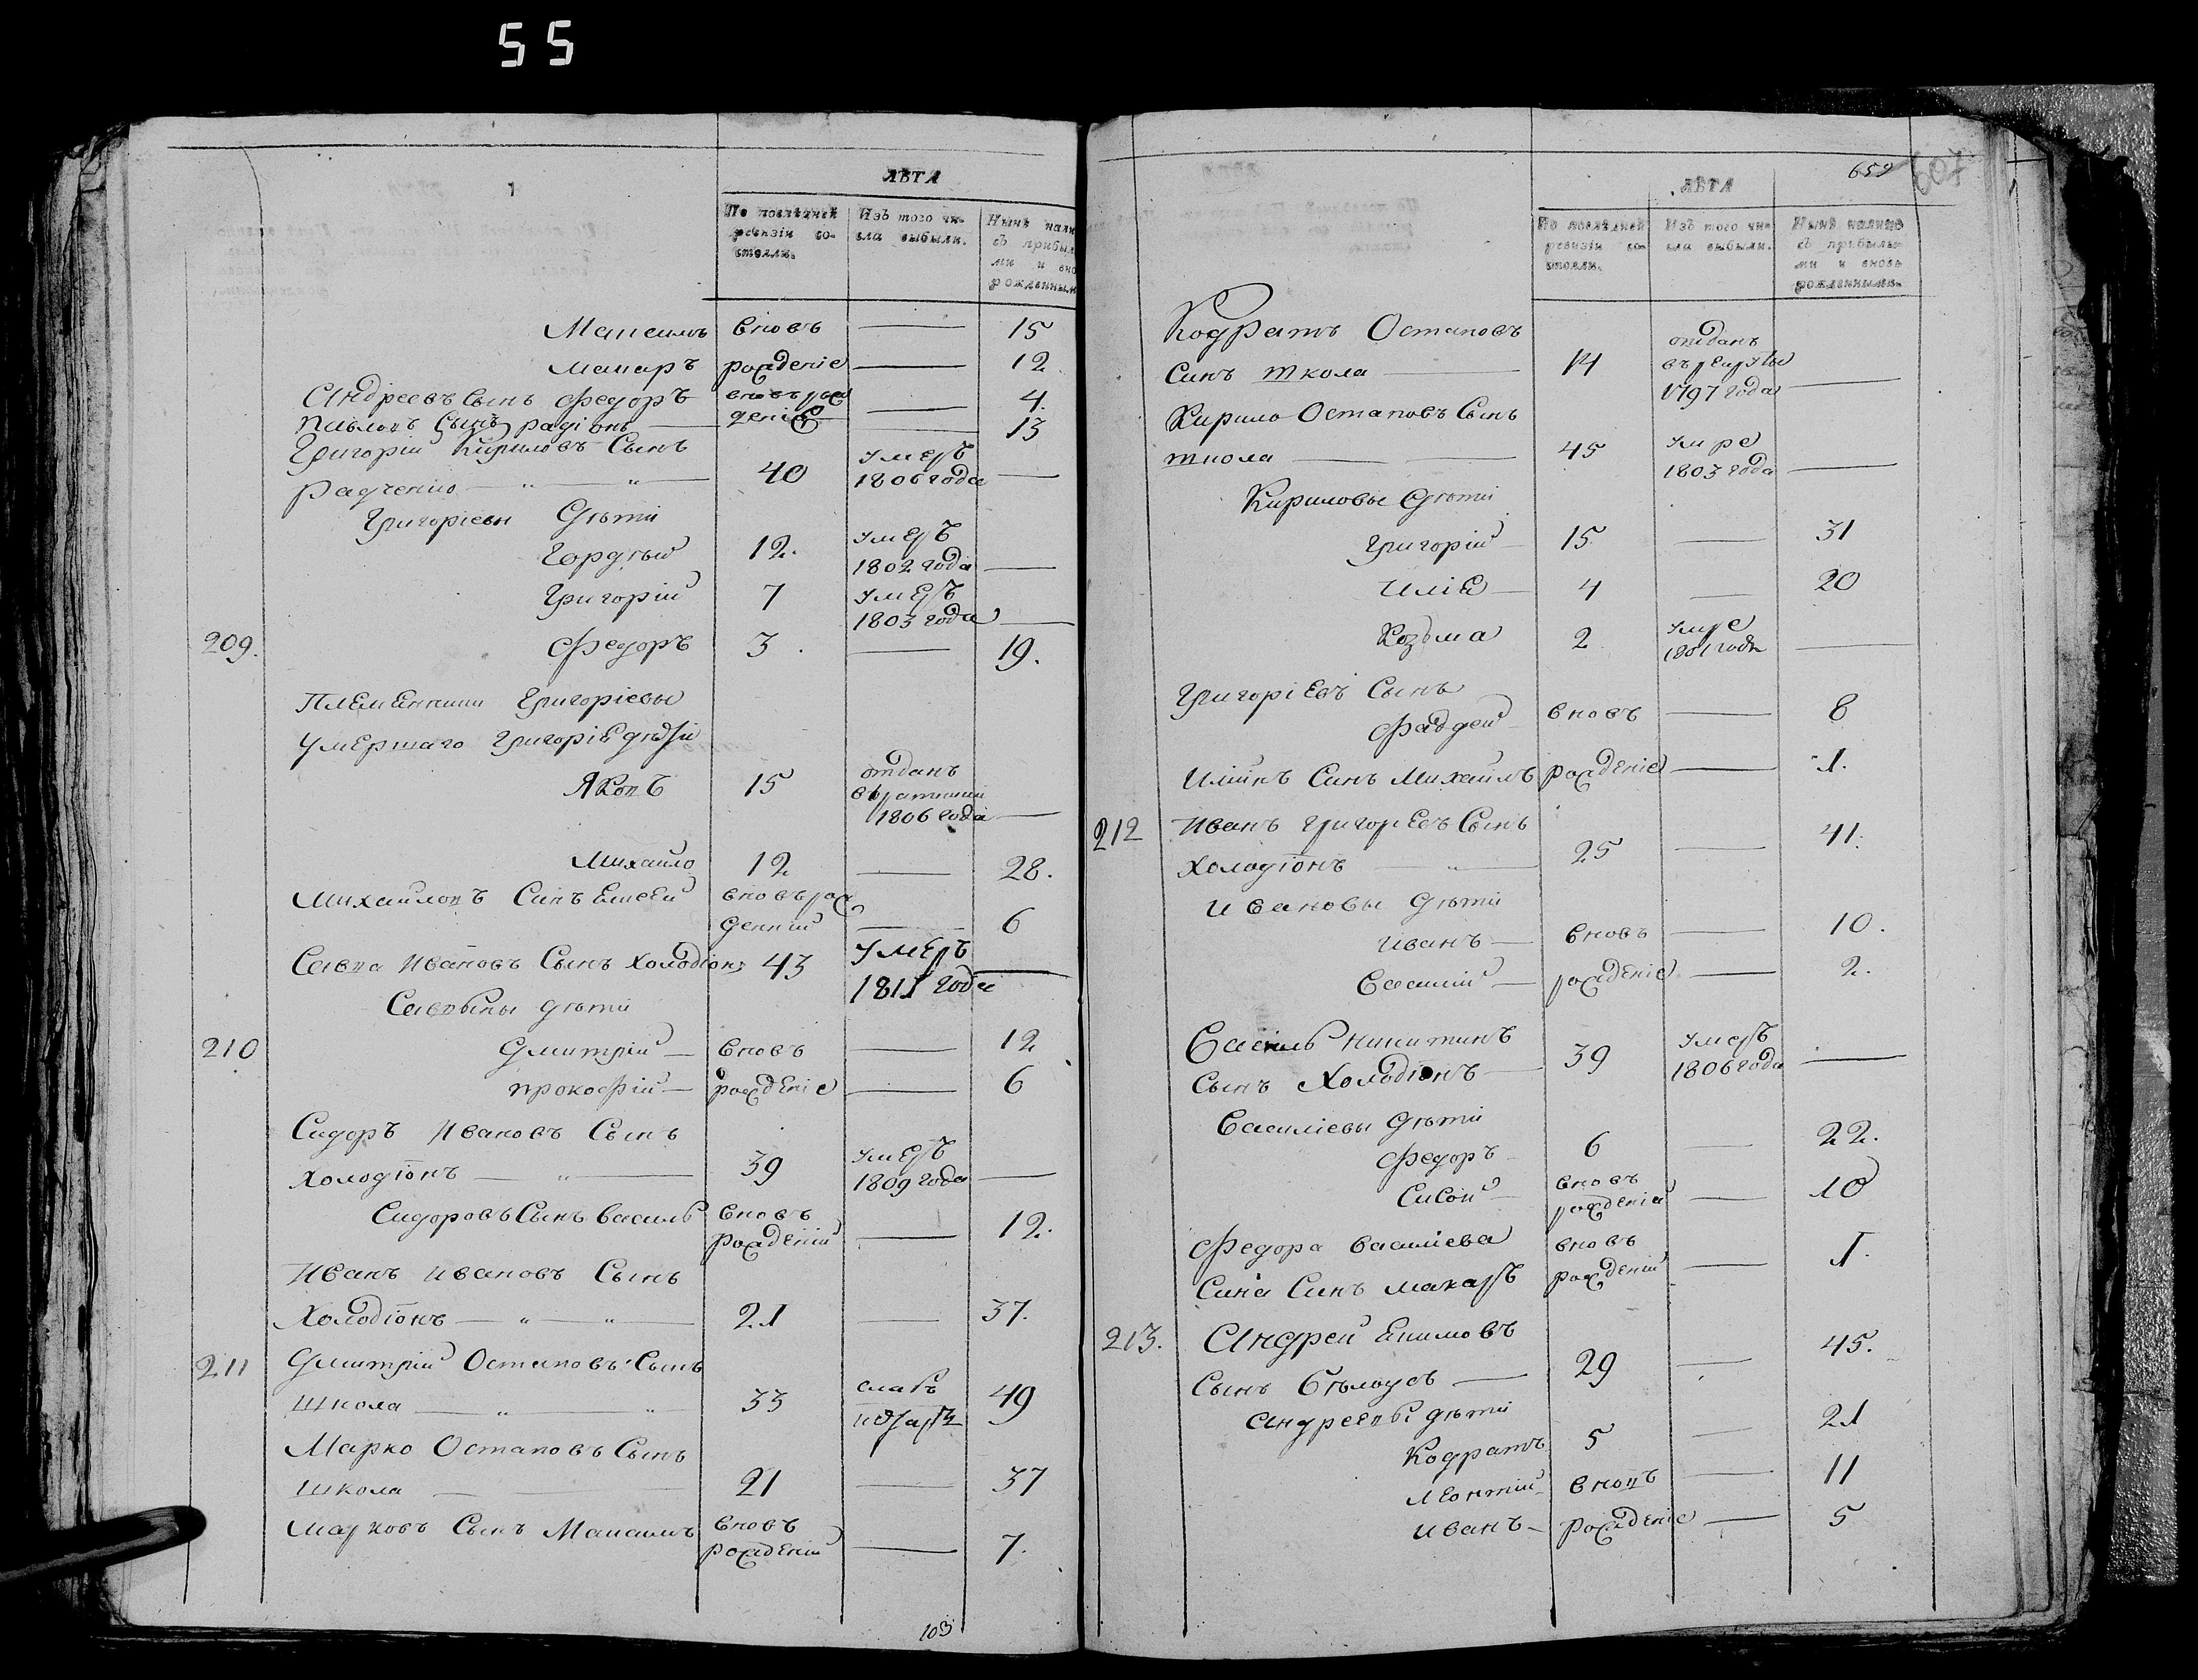 55
ЛѢТА
По послѣдней ревизіи состояли.
Изъ того числа выбыли.
Нынѣ нали
съ прибыл
ми и вно
рожденным
Максимъ вновъ — 15
Макаръ рожденіе — 12
Андреевъ Сынъ Федоръ вновъ рож
деніе — 4.
Павловъ Сынъ радіонъ — 13
Григорій Кириловъ Сынъ
радченко — 40 умеръ 1806 года —
Григоріевы Дѣти
Гордѣй 12. умеръ 1802 года —
Григорій 7 умеръ 1803 года —
209. Федоръ 3. — 19.
Племенники Григоріевы
умершаго Григоріе дѣти
Яковъ 15 отданъ
въ ратники
1806 года —
Михайло 12 — 28.
Михайловъ Синъ Елисей вновъ рож
денній — 6
Савка Ивановъ Сынъ Холодіонъ 43 умеръ
1811 года —
Савкины дѣти
210 Дмитрій — вновъ — 12
прокофій — рожденіе — 6
Сидоръ Ивановъ Сынъ
Холодіонъ — 39 умеръ 1809 года —
Сидоровъ Сынъ Василь вновъ
рожденій — 12.
Иванъ Ивановъ Сынъ
Холодіонъ — 21 — 37.
211 Дмитрій Остаповъ Сынъ
Школа — 33 слабъ 49
Марко Остаповъ Сынъ
Школа — 21 — 37
Марковъ Сынъ Максимъ вновъ
рожденій — 7.
103
659
607
ЛѢТА
По послѣдней ревизіи состояли.
Изъ того числа выбыли.
Нынѣ налицо съ прибылыми и вновь рожденными.
Кодратъ Остаповъ
Синъ Школа — 14 отданъ
въ рекруты
1797 года —
Кирило Остаповъ Сынъ
Школа — 45 умре
1803 года —
Кириловы Дѣти
Григорій — 15 — 31
Иліе — 4 — 20
Козьма 2 умре
1801 года —
Григоріевъ Сынъ
Фаддей вновъ — 8
Илійнъ Синъ Михайлъ рожденіе — 1.
212 Иванъ Григоревъ Сынъ
Холодіонъ — 25 — 41.
Ивановы Дѣти
Иванъ — вновъ — 10.
Василій — рожденіе — 2.
Василь Никитинъ
Сынъ Холодіонъ — 39 умеръ
1806 года —
Василіевы Дѣти
Федоръ — 6 — 22.
Сисой — вновъ
рожденій — 10
Федора Василіева вновъ
Сина Синъ Макаръ рожденій — 1.
213. Андрей Екимовъ
Сынъ Бѣлоусъ — 29 — 45.
Андреевы дѣти
Кодратъ 5 — 21
Леонтій — вновъ — 11
Иванъ — рожденіе — 5